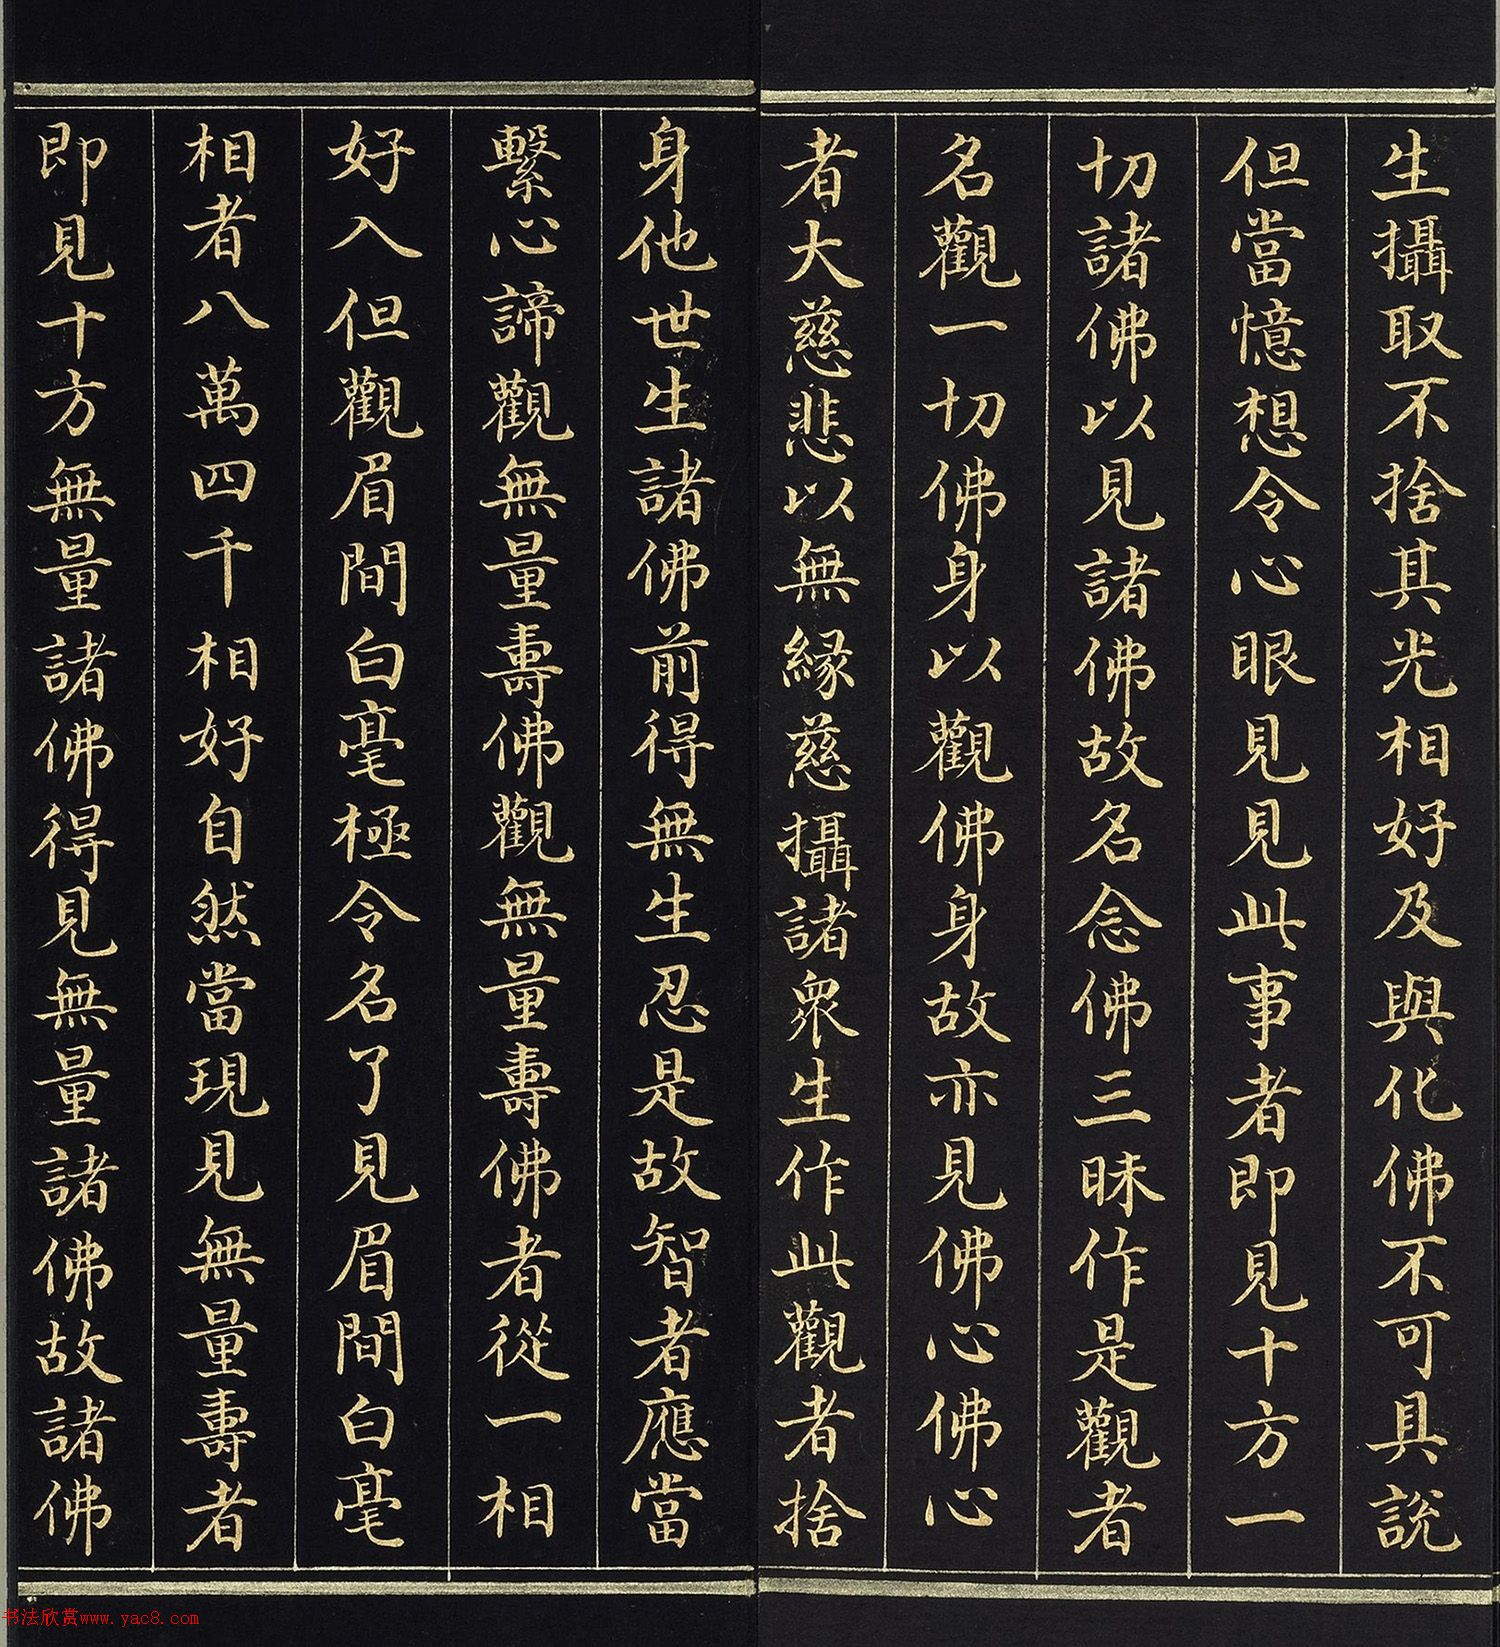 生攝取不捨其光相好及與化佛不可具說
但當憶想令心眼見見此事者即見十方一
切諸佛以見諸佛故名念佛三昧作是觀者
名觀一切佛身以觀佛身故亦見佛心佛心
者大慈悲以無緣慈攝諸眾生作此觀者捨
身他世生諸佛前得無生忍是故智者應當
繫心諦觀無量壽佛觀無量壽佛者從一相
好入但觀眉間白毫極令名了見眉間白毫
相者八萬四千相好自然當現見無量壽者
即見十方無量諸佛得見無量諸佛故諸佛
书法欣赏www.yac8.com